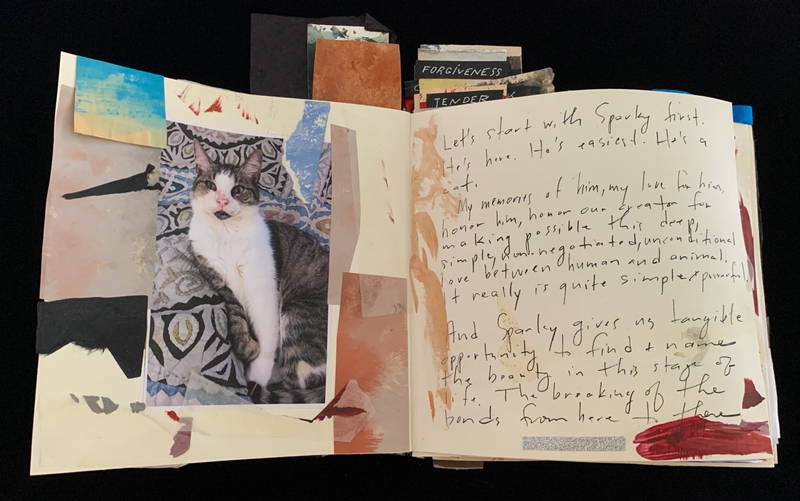 FORGIVENESS
TENDER
Let's start with Sparky first.
He's here. He's easiest. He's a
cat.
My memories of him, my love for him,
honor him, honor our creator for
making possible this deep,
simple, non-negotiated, unconditional
love between human and animal.
It really is quite simple & powerful.
And Sparky gives us tangible
opportunity to find & name
the beauty in this stage of
life. The breaking of the
bonds from here to there